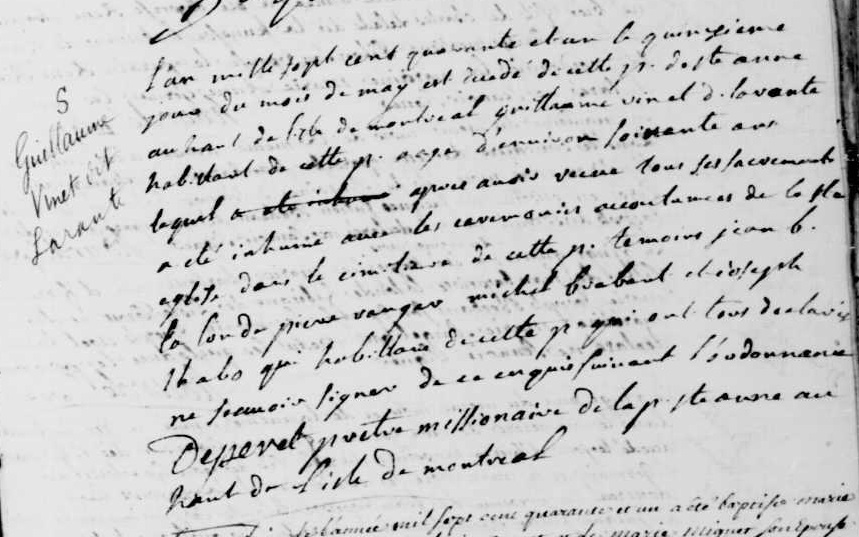 S
Guillaume
Vinet dit
Larante
L'an mille sept cent quarante et un le quinzieme
jour du mois de may est decedé de cette p. de ste anne
au haut de lisle de montreal guillaume vinet d. larante
habittant de cette p. agé d'environ soixante ans
lequel a eté inhumé apres avoir receue tous ses sacrements
a eté inhumé avec les ceremonies acoutumées de la ste
eglise dans le cimetiere de cette p. temoins jean b.
la londe pierre ranger michel brabant et joseph
qui habittans de cette p. qui ont tous declarés
ne scavoir signer de ce enquis suivant l'ordonnance
prêtre missionaire de la p. ste anne au
haut de l'isle de montreal
de l'année mil sept cent quarante et un a eté baptisée marie
marie